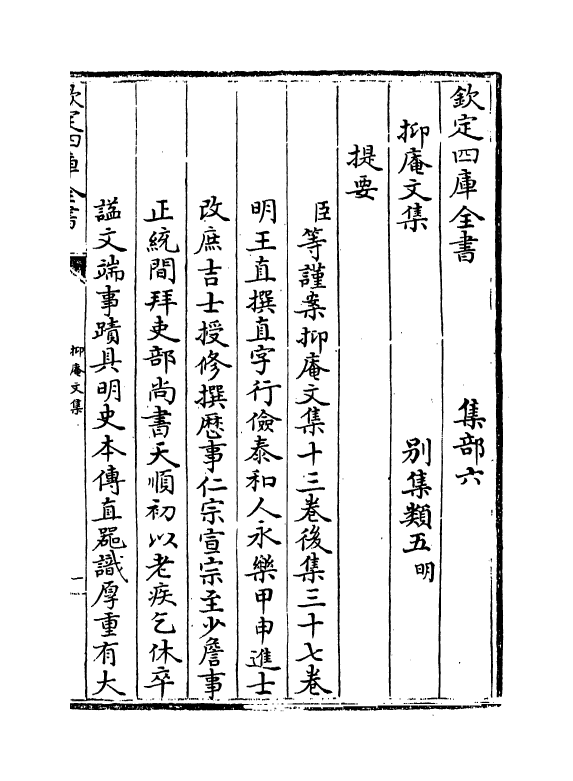 欽定四庫全書　集部六
抑庵文集　別集類五明
提要
臣等謹案抑庵文集十三卷後集三十七卷
明王直撰直字行儉泰和人永樂甲申進士
改庶吉士授修撰歴事仁宗宣宗至少詹事
正統間拜吏部尚書天順初以老疾乞休卒
諡文端事蹟具明史本傳直器識厚重有大
欽定四庫全書
抑庵文集
一